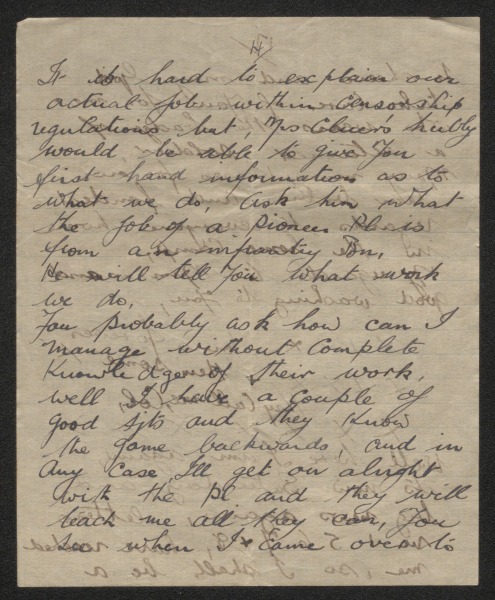 4
It is hard to explain our
actual job within Censorship
regulations but, Mrs hubby
would be able to give You
first hand information as to
what we do, ask him what
the Job of a Pioneer Pl is
from an infantry Bn,
He will tell You what work
we do.
You Probably ask how can I
manage without Complete
Knowledge of their work,
well I have a Couple of
good sjts and they Know
the game backwards, and in
Any Case I'll get on alright
with the Pl and they will
teach me all they can, You
see when I Came over to